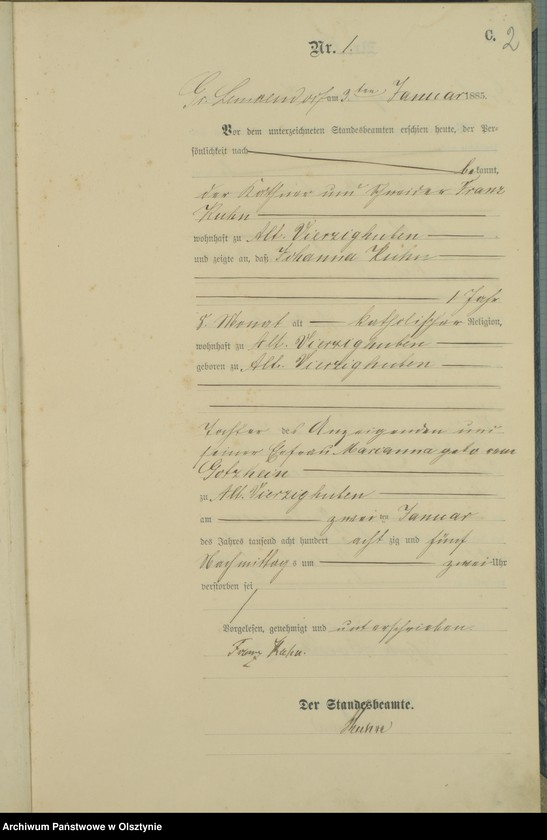 C. 2
Nr. 1.
Gr. Lemkendorf am 3ten Januar 1885.
Vor dem unterzeichneten Standesbeamten erschien heute, der Per-
sönlichkeit nach
bekannt,
der Käthner und Schneider Franz
Kuhn
wohnhaft zu Alt. Vierzighuben
und zeigte an, daß Johanna Kuhn
1 Jahr
Monat alt katholischer Religion,
wohnhaft zu Alt. Vierzighuben
geboren zu Alt. Vierzighuben
Tochter des Anzeigenden und
seiner Ehefrau Marianna
Gotzhein
zu Alt. Vierzighuben
am zweiten Januar
des Jahres tausend acht hundert acht zig und fünf
Nachmittags um zwei Uhr
verstorben sei
Vorgelesen, genehmigt und unterschrieben.
Franz Kuhn.
Der Standesbeamte.
Kuhn
Archiwum Państwowe w Olsztynie